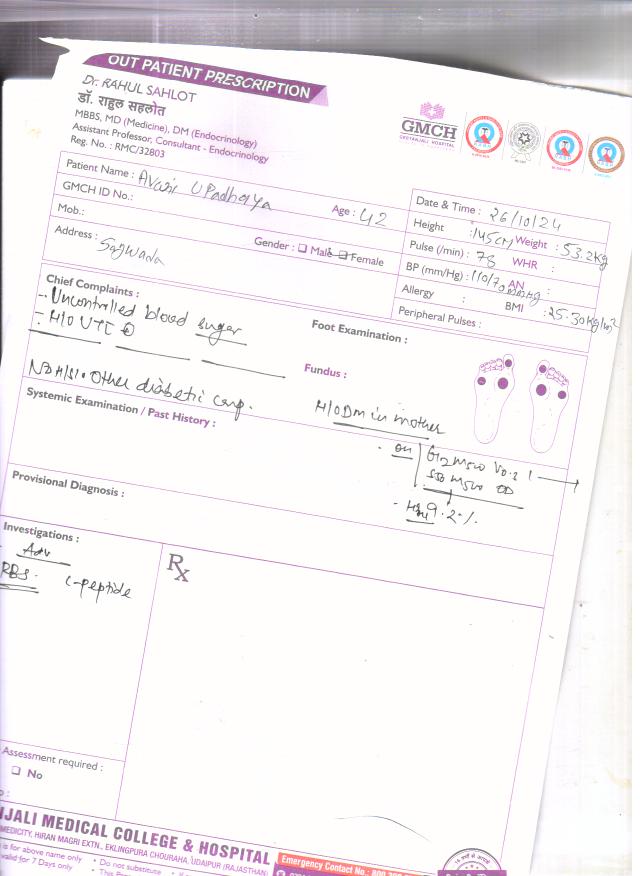 OUT PATIENT PRESCRIPTION
Dr. RAHUL SAHLOT
डॉ. राहुल सहलोत
MBBS, MD (Medicine), DM (Endocrinology)
Assistant Professor, Consultant - Endocrinology
Reg. No. : RMC/32803
GMCH
GEETANJALI HOSPITAL
Patient Name : UPadhaya
Age : 42
GMCH ID No.:
Mob.:
Gender : Male Female
Address : Sagwada
Date & Time : 26/10/24
Height : 145cm Weight : 53.2kg
Pulse (/min) : 78 WHR :
BP (mm/Hg) : 110/70mmHg AN :
Allergy : BMI : 25.30kg/m2
Peripheral Pulses :
Chief Complaints :
- Uncontrolled blood sugar
- H/O UTI
Other diabetic comp.
Foot Examination :
Fundus :
H/O DM in mother
Systemic Examination / Past History :
- on
OD
- 9.2%
Provisional Diagnosis :
Investigations :
Adv
RBS. C-peptide
Rx
Assessment required :
No
NJALI MEDICAL COLLEGE & HOSPITAL
MEDICITY, HIRAN MAGRI EXTN., EKLINGPURA CHOURAHA, UDAIPUR (RAJASTHAN)
is for above name only • Do not substitute
valid for 7 Days only
Emergency Contact No.: